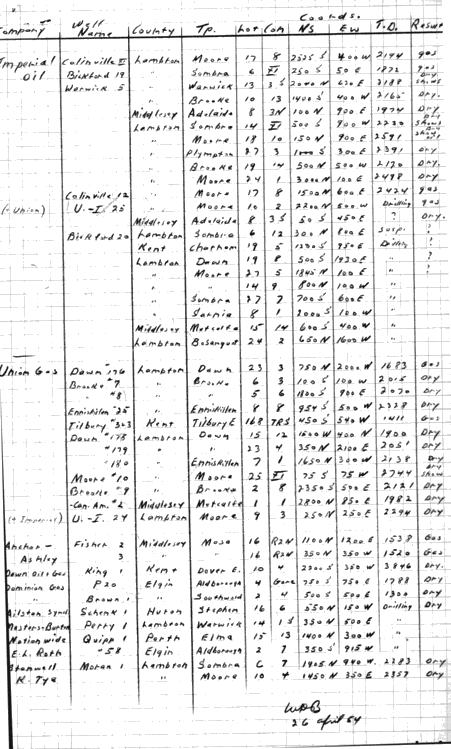 Coords.
Company Well Name County Tp. Lot Con NS EW T.D. Result
Imperial Colinville II Lambton Moore 17 8 2525 S 400 W 2194 gas
Oil Bickford 19 " Sombra 6 XI 250 S 50 E 1872 gas
Warwick 5 " Warwick 13 3 S 620 E 2188
" Brooke 10 13 1400 S 400 W 2165 Dry.
Middlesex Adelaide 8 3N 100 N 900 E 1974 Dry.
Lambton Sombra 14 XI 500 S 900 W 2230
" Moore 18 10 150 N 900 E 2591
" Plympton 27 3 300 E 2391 Dry.
" Brooke 19 14 500 N 500 W 2120 Dry.
" Moore 24 1 3000 N 100 E 2498 Dry.
Colinville 12 " Moore 17 8 1500 N 600 E 2424 gas
(+ Union) U.-I. 25 " Moore 10 2 2200 N 500 W Drilling gas
Middlesex Adelaide 8 3 S 50 S 450 E ? Dry.
Bickford 20 Lambton Sombra 6 12 300 N 800 E Susp. ?
Kent Chatham 19 5 950 E Drilling ?
Lambton Dawn 19 8 500 S 1930 E " ?
" Moore 27 5 1845 N 100 E " ?
" " 14 9 800 N 100 W "
" Sombra 27 7 700 S 600 E "
" Sarnia 8 1 2000 S 100 W "
Middlesex Metcalfe 15 14 600 S 400 W "
Lambton Bosanquet 24 2 650 N 1600 W "
Union Gas Dawn #176 Lambton Dawn 23 3 750 N 2000 W 1683 Gas
Brooke #7 " Brooke 6 3 100 S 100 W 2015 Dry
" #8 " " 5 6 1800 S 900 E 2070 Dry
Enniskillen #25 " Enniskillen 8 8 954 S 500 W 2328 Dry
Tilbury #363 Kent Tilbury E 168 TRS 450 S 540 W 1411 Gas
Dawn #178 Lambton Dawn 15 12 1500 W 400 N 1900 Dry
" #179 " " 23 4 350 N 2100 E 2051 Dry
" #180 " Enniskillen 7 1 1650 N 300 W 2138 Dry
Moore #10 " Moore 25 XI 75 S 75 W 2744
Brooke #9 " Brooke 2 8 2350 S 500 E 2121 Dry
Can. Am. #2 Middlesex Metcalfe 1 1 2800 N 850 E 1982 Dry
(+ Imperial) U.-I. 24 Lambton Moore 9 3 250 N 250 E 2294 Dry
Anchor - Fisher 2 Middlesex Mosa 16 R2N 1100 N 1200 E 1538 Gas
Ashley 3 " " 16 R2N 350 N 350 W 1520 Gas
Dawn Oil & Gas King 1 Kent Dover E. 10 4 2300 S 350 W 3846 Dry.
Dominion Gas P20 Elgin Aldborough 4 Gore 750 S 750 E 1788 Dry
" Brown 1 " Southwold 2 4 500 S 500 E 1300 Dry
Ailston Synd Schenk 1 Huron Stephen 16 6 550 N 150 W Drilling Dry
Masters-Burton Perry 1 Lambton Warwick 14 1 S 350 N 500 E "
Nation wide Quipp 1 Perth Elma 15 13 1400 N 300 W "
E.L. Roth #58 Elgin Aldborough 2 7 350 S 915 W "
Stanwell Moran 1 Lambton Sombra 6 7 1905 N 940 W. 2383 Dry
K. Tye " Moore 10 4 1450 N 350 E 2357 Dry.
WPB
26 April 54